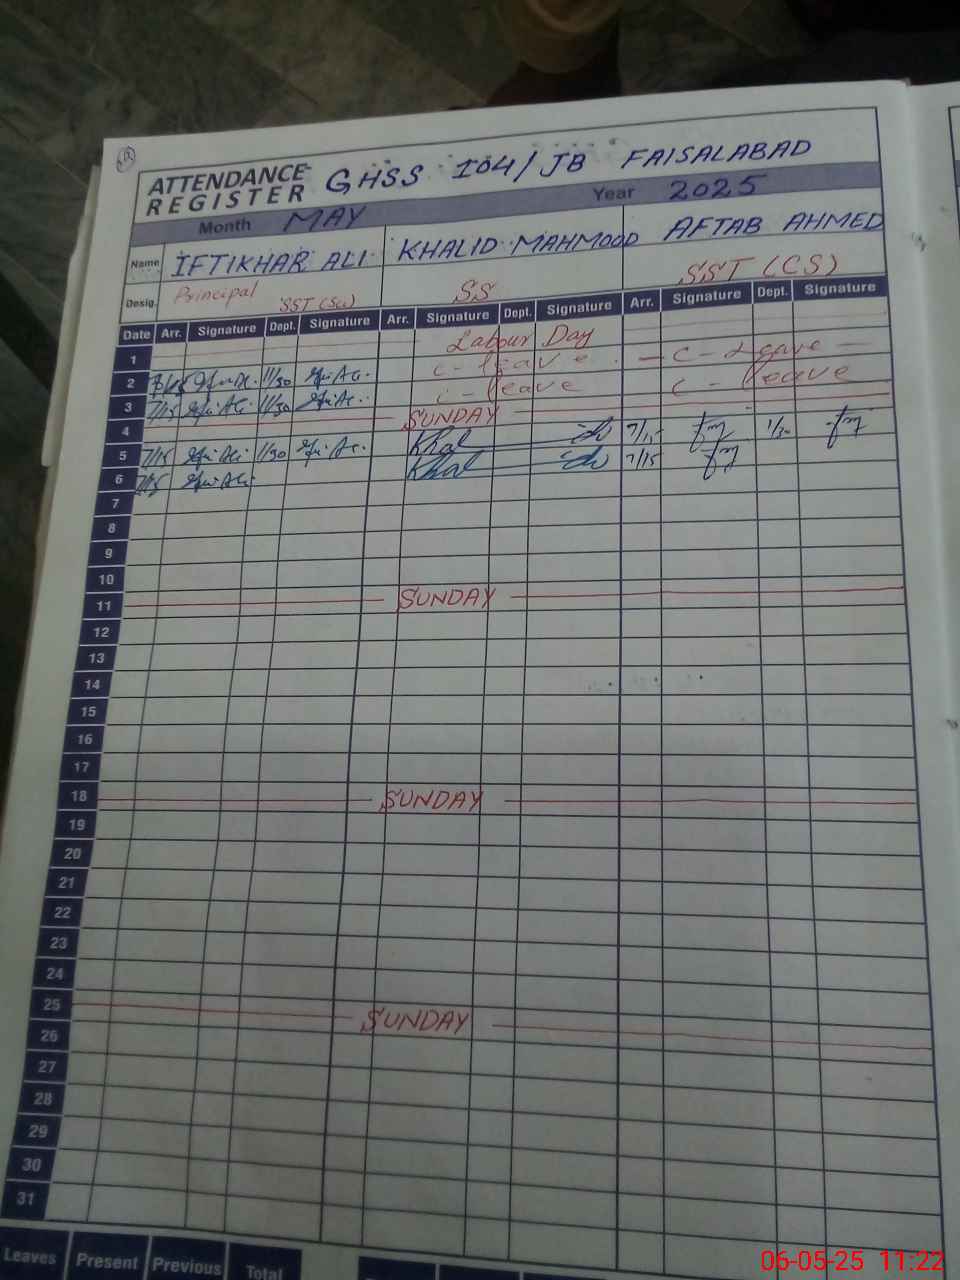 12
ATTENDANCE REGISTER GHSS 104/JB FAISALABAD
Month MAY Year 2025
Name IFTIKHAR ALI KHALID MAHMOOD AFTAB AHMED
Desig. Principal SST (Sci) SS SST (CS)
Date Arr. Signature Dept. Signature Arr. Signature Dept. Signature Arr. Signature Dept. Signature
1 Labour Day
2 7/15 11/30 c - leave - c - Leave -
3 7/15 11/30 c - leave c - leave
4 SUNDAY
5 7/15 1/30 Khal id 7/15 1/30
6 7/15 Khal id 7/15
7
8
9
10
11 SUNDAY
12
13
14
15
16
17
18 SUNDAY
19
20
21
22
23
24
25 SUNDAY
26
27
28
29
30
31
Leaves Present Previous Total
06-05-25 11:22